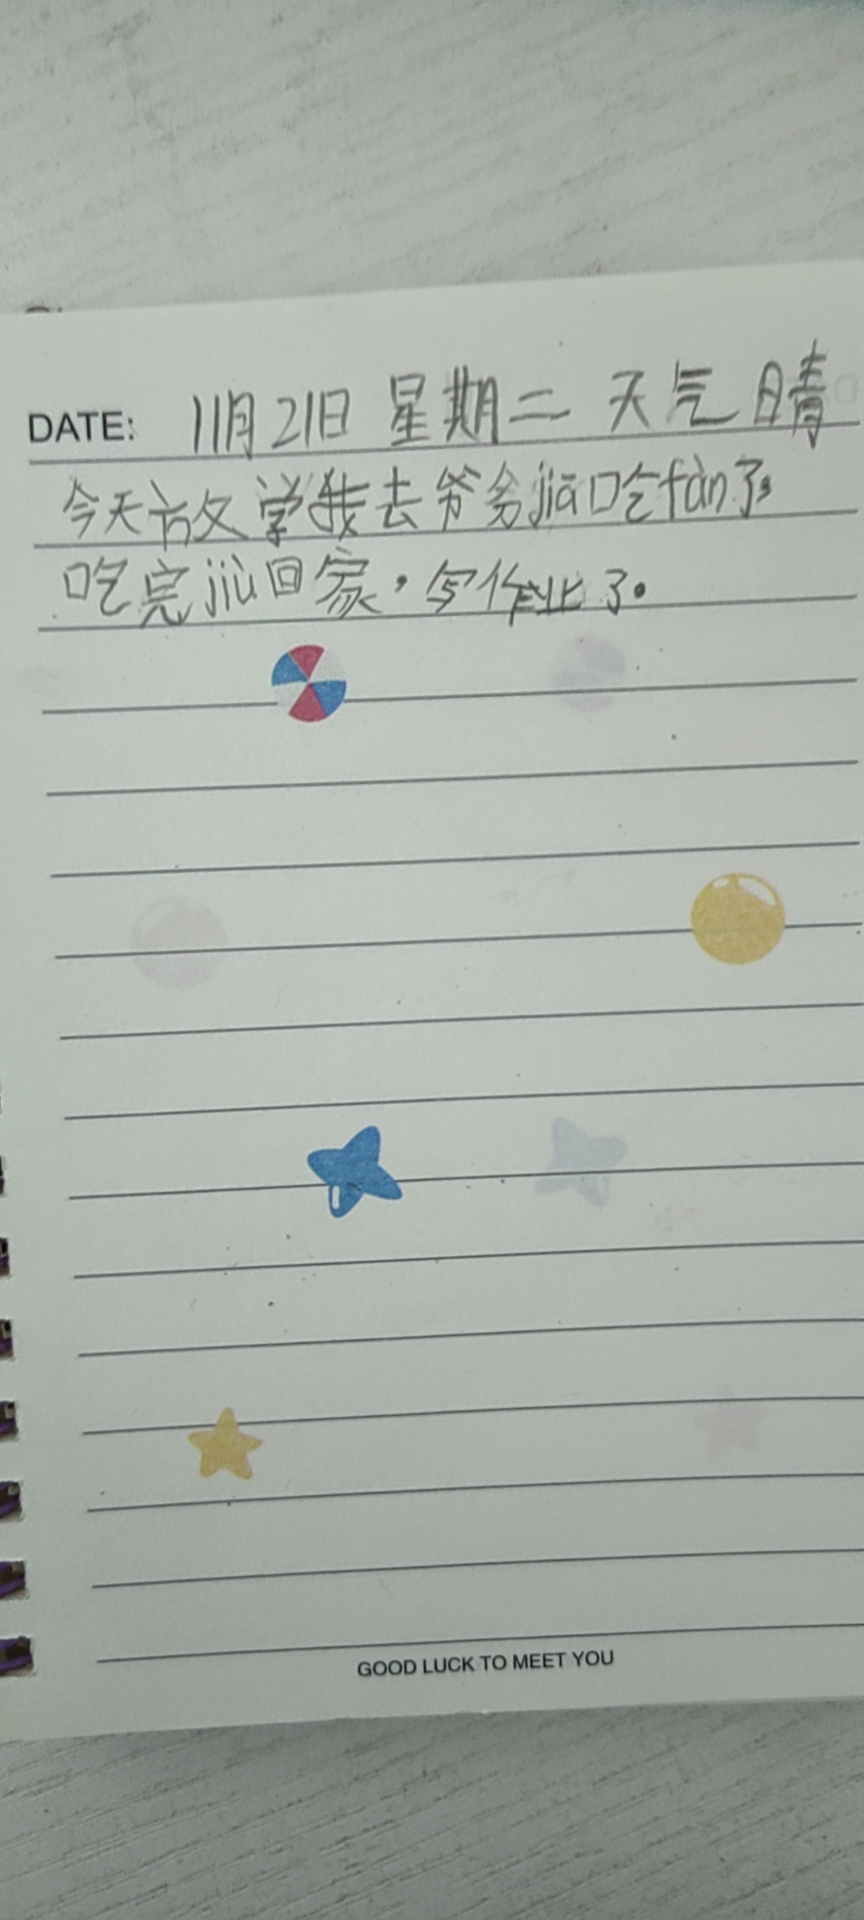 DATE: 11月21日 星期二 天气晴
今天放学我去爷爷jiā吃fàn了,
吃完jiù回家，写作业了。
GOOD LUCK TO MEET YOU